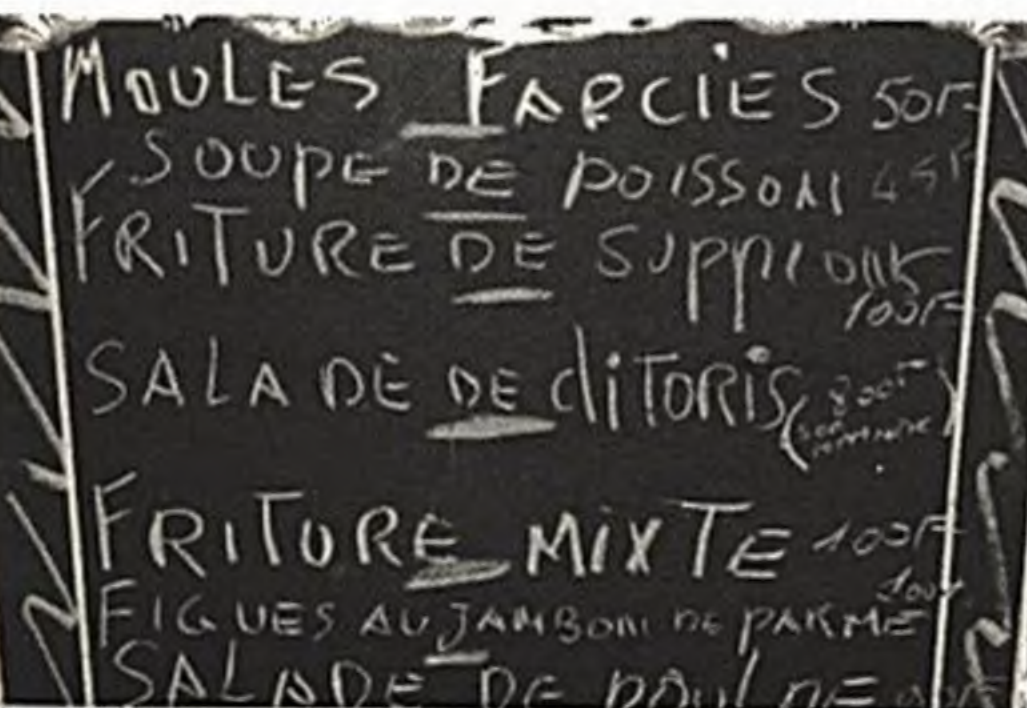 MOULES FARCIES 50F
SOUPE DE POISSON 45F
FRITURE DE SUPPIONS
100F
SALADE DE clITORIS (800F
sur commande)
FRITURE MIXTE 100F
100F
FIGUES AU JAMBON DE PARME
SALADE DE POULPE